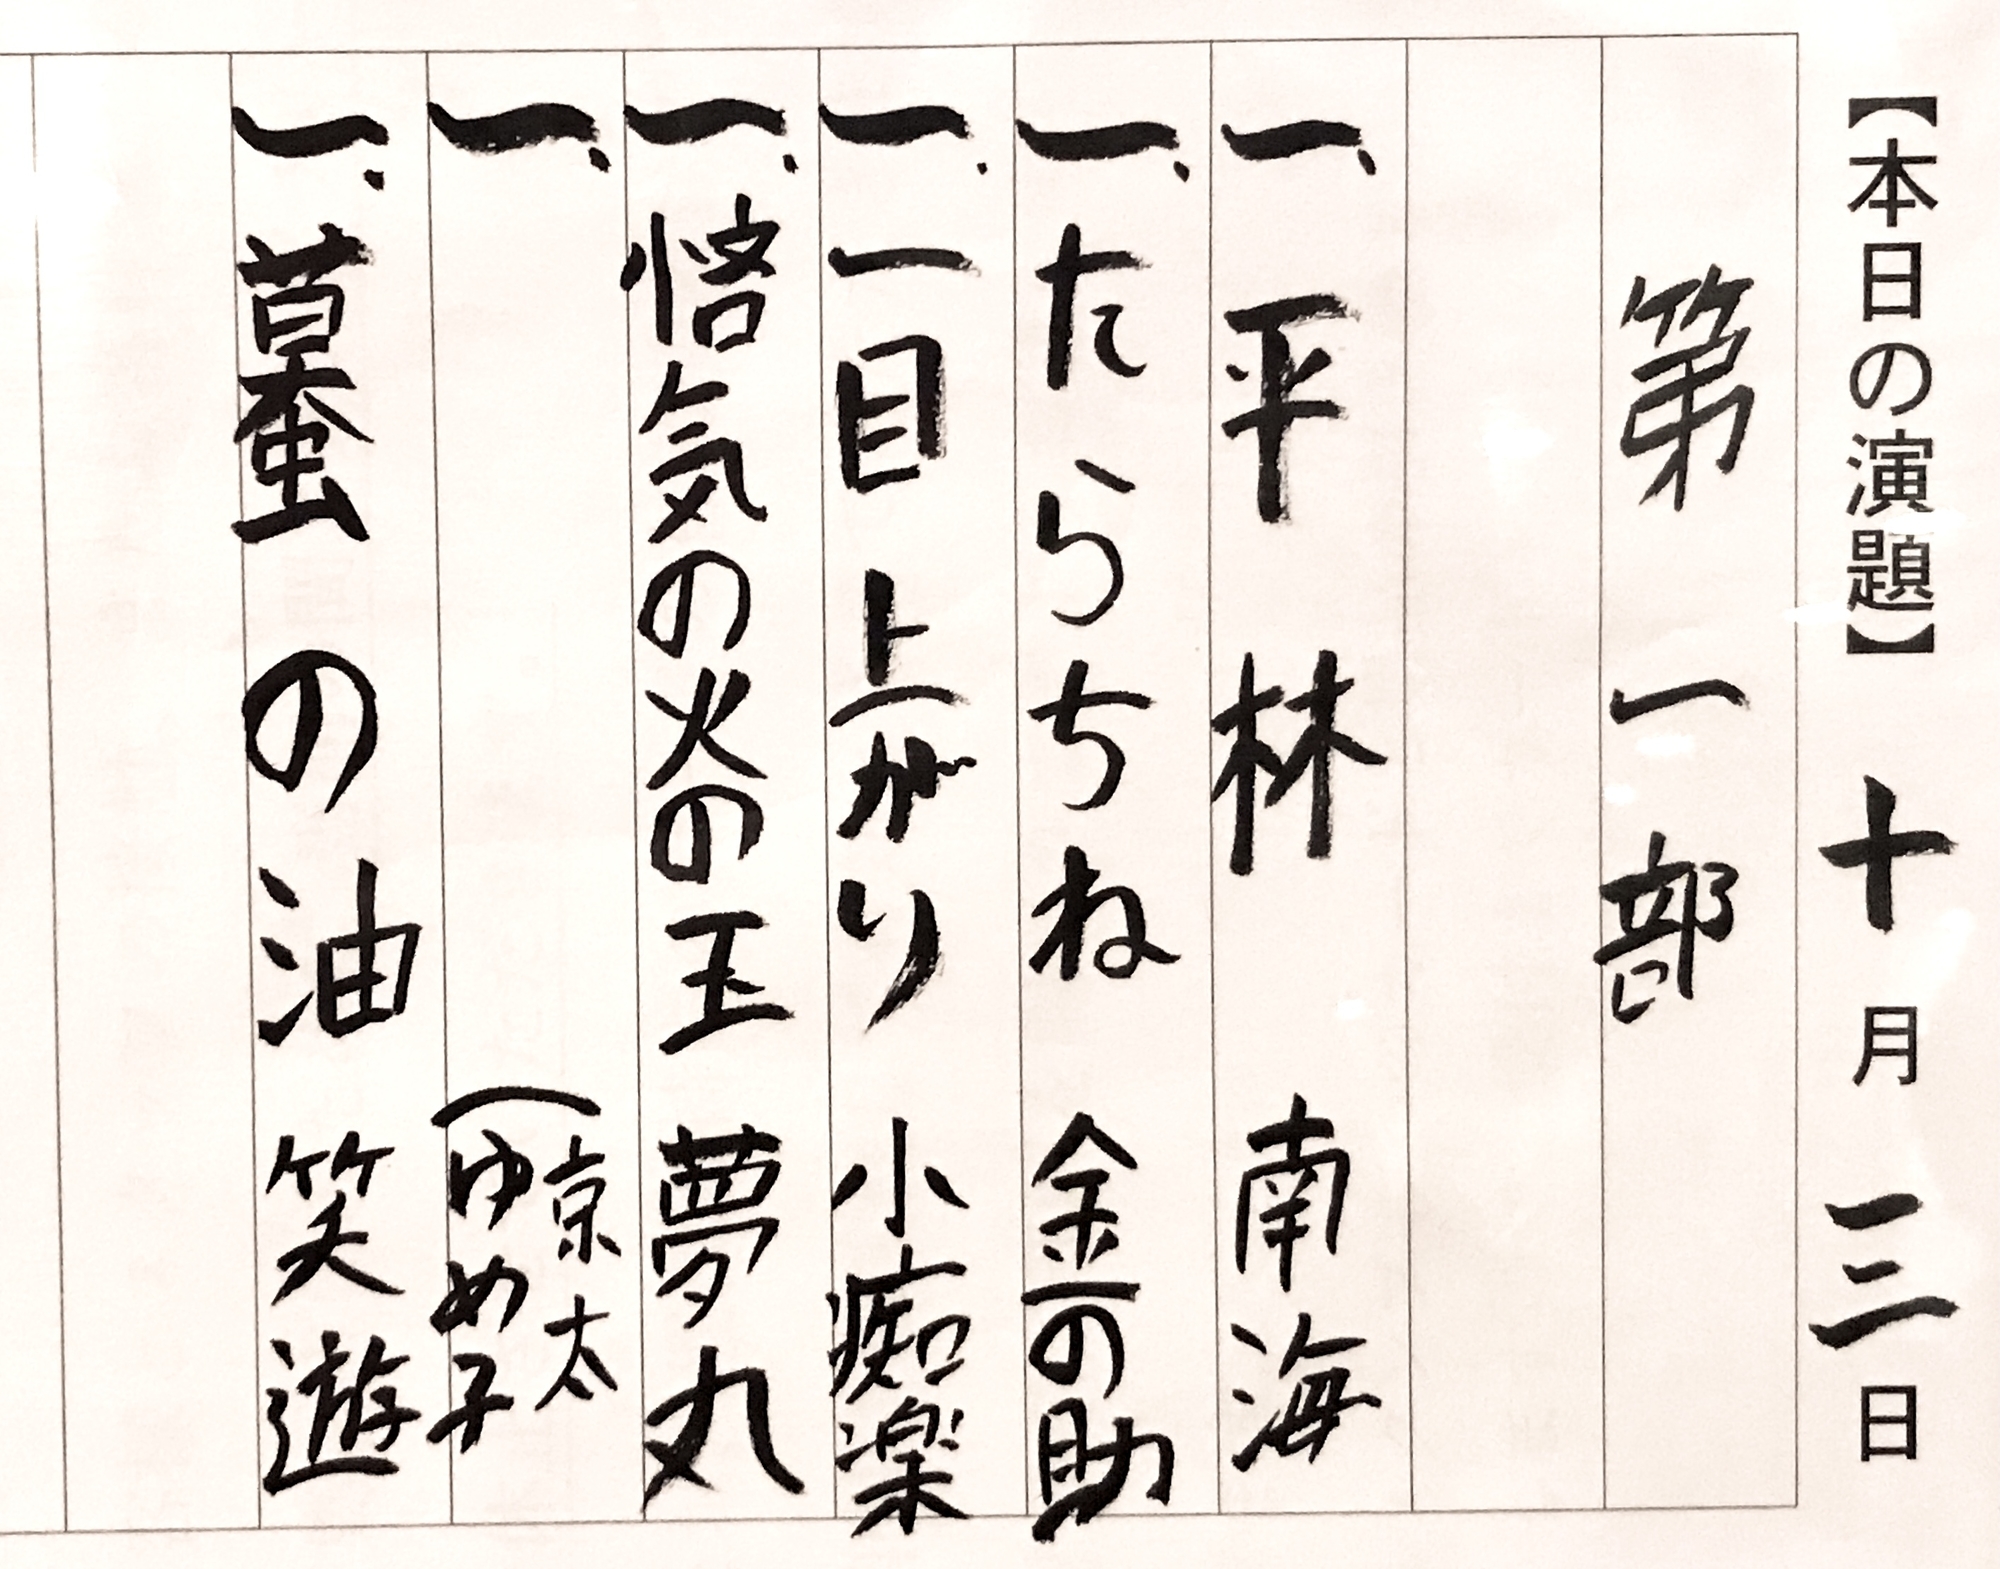 【本日の演題】十月三日
第一部
一、平林 南海
一、たらちね 金の助
一、一目上がり 小痴楽
一、悋気の火の玉 夢丸
一、（京太
ゆめ子
一、蟇の油 笑遊